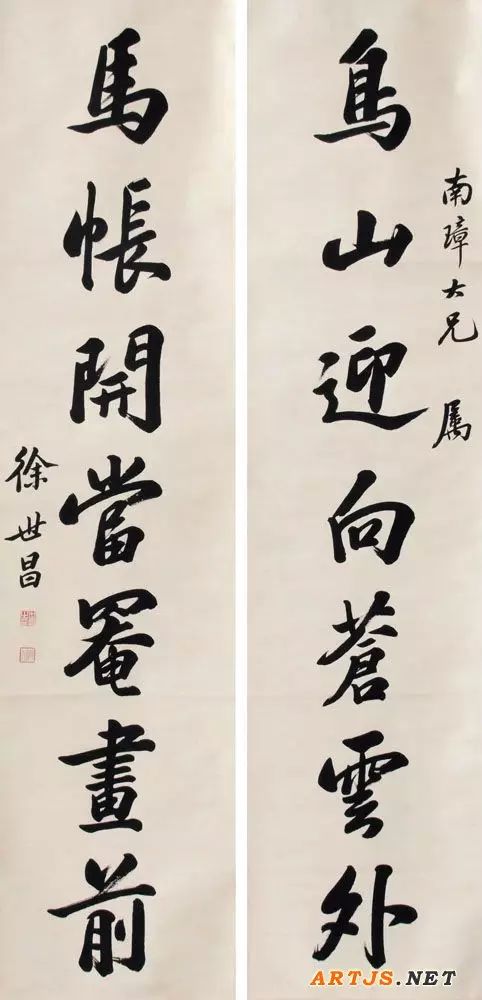 南璋大兄 属
鳥山迎向蒼雲外
馬帳開當罨畫前
徐世昌
ARTJS.NET